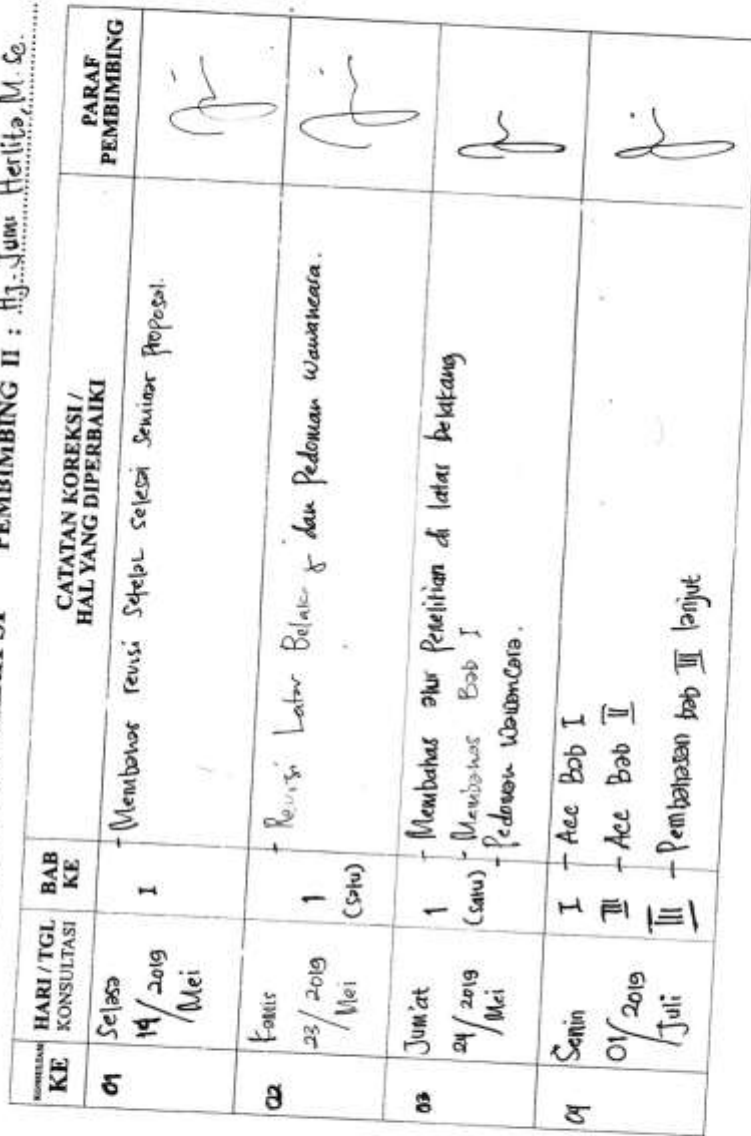 PEMBIMBING II : Hj. Jumi Herlita, M. Se.
KE
HARI / TGL
KONSULTASI
BAB
KE
CATATAN KOREKSI /
HAL YANG DIPERBAIKI
PARAF
PEMBIMBING
01
Selasa
14/2019
Mei
I
- Membahas revisi setelah selesai Seminar Proposal.
02
Kamis
23/2019
Mei
1
(satu)
- Revisi Latar Belakg dan Pedoman Wawancara.
03
Jum'at
24/2019
Mei
1
(satu)
- Membahas alur Penelitian di latar belakang
- Membahas Bab I
- Pedoman Wawancara.
04
Senin
01/2019
Juli
I - Acc Bab I
II - Acc Bab II
III - Pembahasan bab III lanjut